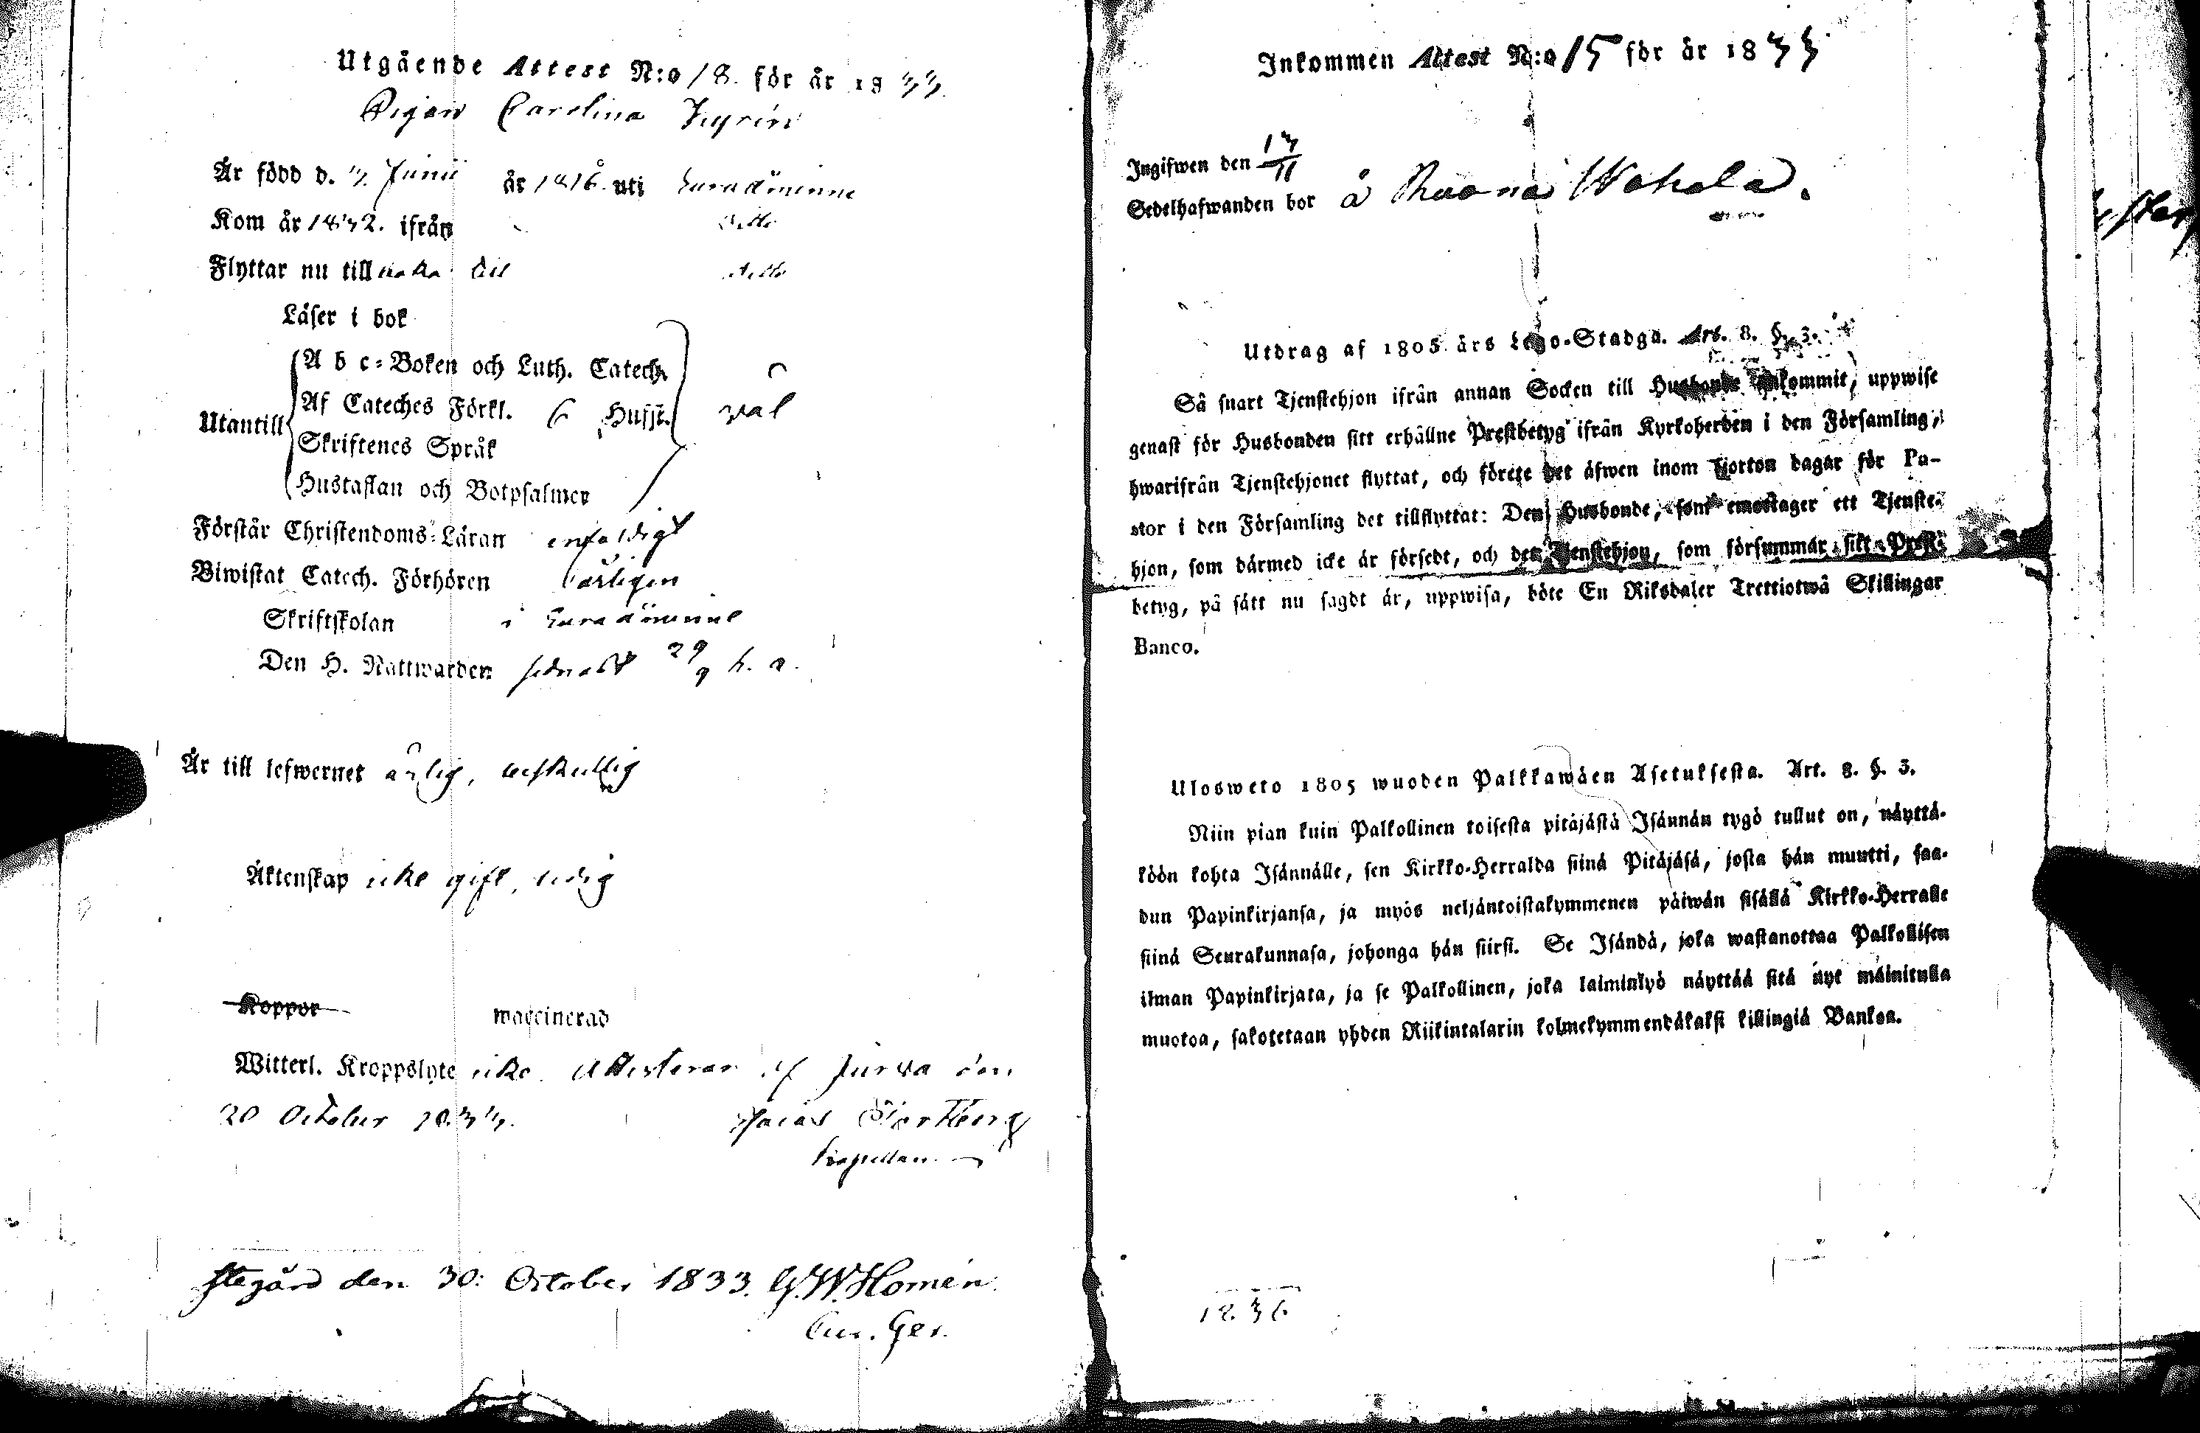 Utgående Attest N:o 18. för år 1833.
Pigan Carolina
Är född d. 3. Junii år 1816. uti
Kom år 1832. ifrån ditto
Flyttar nu till baka till ditto
Läser i bok
A b c-Boken och Luth. Catech.
Af Cateches Förkl. 6 Hufst. väl
Utantill
Skriftenes Språk
Hustaflan och Botpsalmer
Förstår Christendoms-Läran enfaldigt
Biwistat Catech. Förhören årligen
Skriftskolan i
Den H. Nattwarden sednast 29/9 h. a.
Är till lefwernet ärlig, beskedlig
Äktenskap icke gift, ledig
Koppor waccinerad
Witterl. Kroppslyte icke. Attesterar af Jurva den
20 October 1833.
Kapellan
den 30: October 1833. G.W. Homén.
Inkommen Attest N:o 15 för år 1833
Ingifwen den 13/11
Sedelhafwanden bor å
Utdrag af 1805 års Lego-Stadga. Art. 8. §. 3.
Så snart Tjenstehjon ifrån annan Socken till Husbonde ankommit, uppwise
genast för Husbonden sitt erhållne Prestbetyg ifrån Kyrkoherden i den Församling,
hwarifrån Tjenstehjonet flyttat, och förete det äfwen inom fjorton dagar för Pa-
stor i den Församling det tillflyttat: Den Husbonde, som emottager ett Tjenste-
hjon, som därmed icke är försedt, och det Tjenstehjon, som försummar sitt Prest-
betyg, på sätt nu sagdt är, uppwisa, böte En Riksdaler Trettiotwå Skillingar
Banco.
Ulosweto 1805 wuoden Palkkawäen Asetuksesta. Art. 8. §. 3.
Niin pian kuin Palkollinen toisesta pitäjästä Isännän tygö tullut on, näyttä-
köön kohta Isännälle, sen Kirkko-Herralda siinä Pitäjäsä, josta hän muutti, saa-
dun Papinkirjansa, ja myös neljäntoistakymmenen päiwän sisällä Kirkko-Herralle
siinä Seurakunnasa, johonga hän siirsi. Se Isändä, joka wastanottaa Palkollisen
ilman Papinkirjata, ja se Palkollinen, joka laiminlyö näyttää sitä nyt mainitulla
muotoa, sakotetaan yhden Riikintalarin kolmekymmendäkaksi killingiä Bankoa.
1836